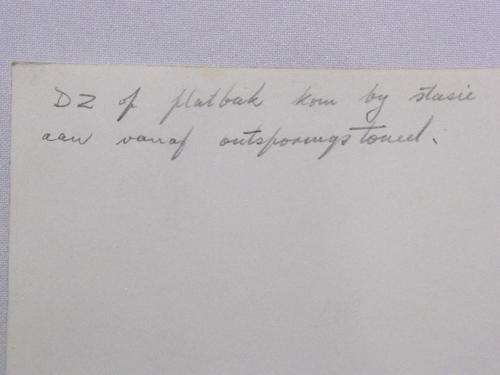 DZ of platbak kom by stasie
aan vanaf ontsporingstoneel.